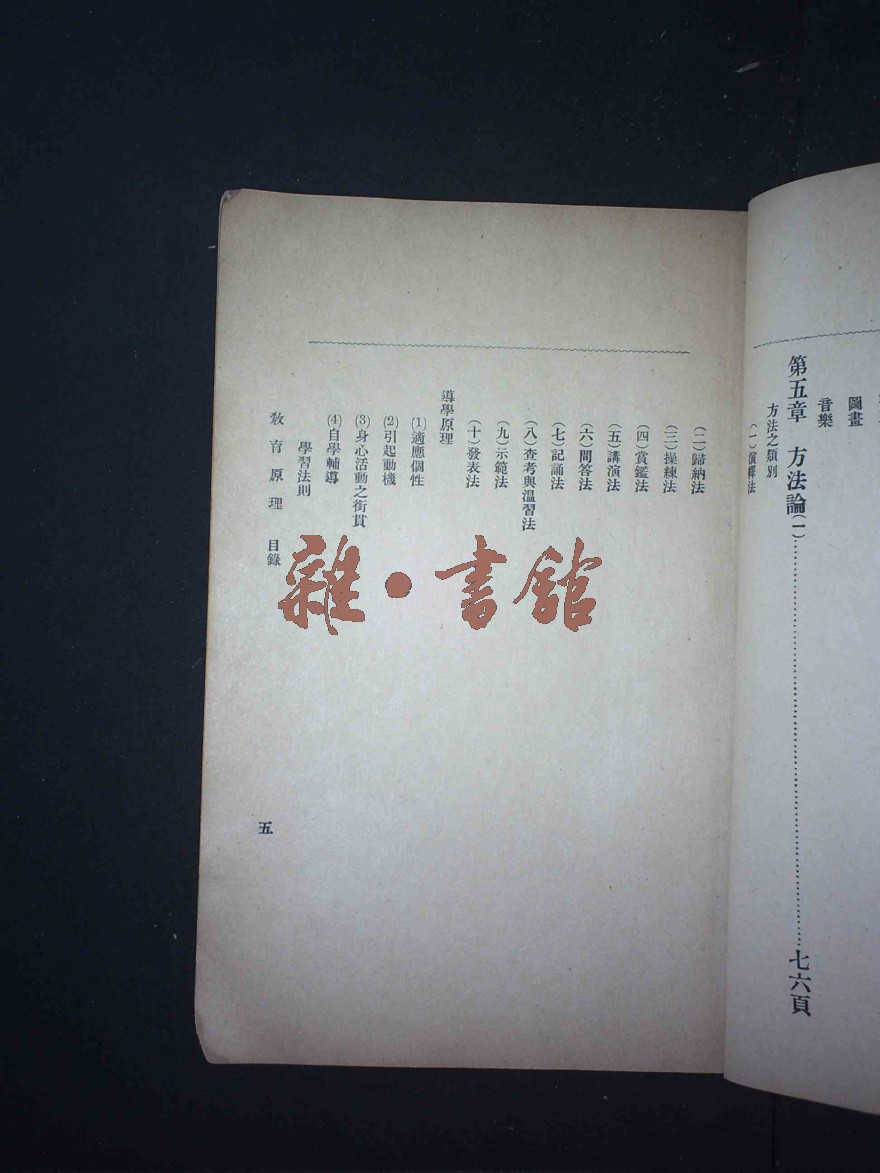 圖畫
音樂
第五章　方法論(一)……七六頁
方法之類別
(一)演繹法
(二)歸納法
(三)操練法
(四)賞鑑法
(五)講演法
(六)問答法
(七)記誦法
(八)查考與溫習法
(九)示範法
(十)發表法
導學原理
(1)適應個性
(2)引起動機
(3)身心活動之銜貫
(4)自學輔導
學習法則
敎育原理　目錄
五
雜·書館